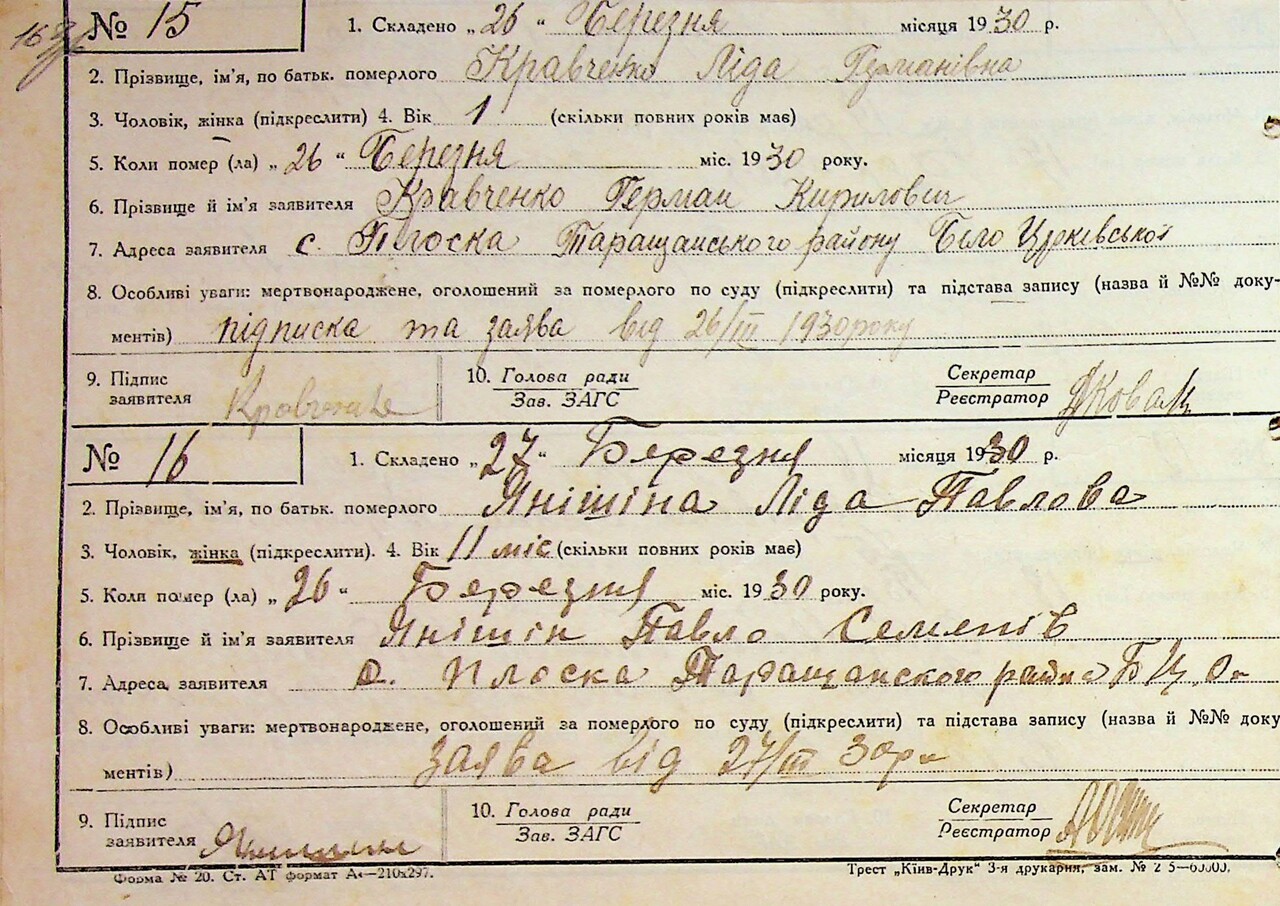 № 15 1. Складено „26“ Березня місяця 1930 р.
2. Прізвище, ім'я, по батьк. померлого Кравченко Ліда Германівна
3. Чоловік, жінка (підкреслити) 4. Вік 1 (скільки повних років має)
5. Коли помер (ла) „26“ Березня міс. 1930 року.
6. Прізвище й ім'я заявителя Кравченко Герман Кирилович
7. Адреса заявителя с. Плоска Таращанського району Біло Церківської
8. Особливі уваги: мертвонароджене, оголошений за померлого по суду (підкреслити) та підстава запису (назва й №№ доку-
ментів) підписка та заява від 26/III 1930 року
9. Підпис заявителя Кравченко 10. Голова ради Зав. ЗАГС Секретар Реєстратор Коваль
№ 16 1. Складено „27“ Березня місяця 1930 р.
2. Прізвище, ім'я, по батьк. померлого Янішіна Ліда Павлова
3. Чоловік, жінка (підкреслити). 4. Вік 11 міс (скільки повних років має)
5. Коли помер (ла) „26“ Березня міс. 1930 року.
6. Прізвище й ім'я заявителя Янішін Павло Семенів
7. Адреса заявителя с. Плоска Таращанского району Б Ц. О-
8. Особливі уваги: мертвонароджене, оголошений за померлого по суду (підкреслити) та підстава запису (назва й №№ доку
ментів) заява від 27/III 30 р
9. Підпис заявителя 10. Голова ради Зав. ЗАГС Секретар Реєстратор
Форма № 20. Ст. АТ формат А₄—210х297. Трест „Київ-Друк“ 3-я друкарня, зам. №